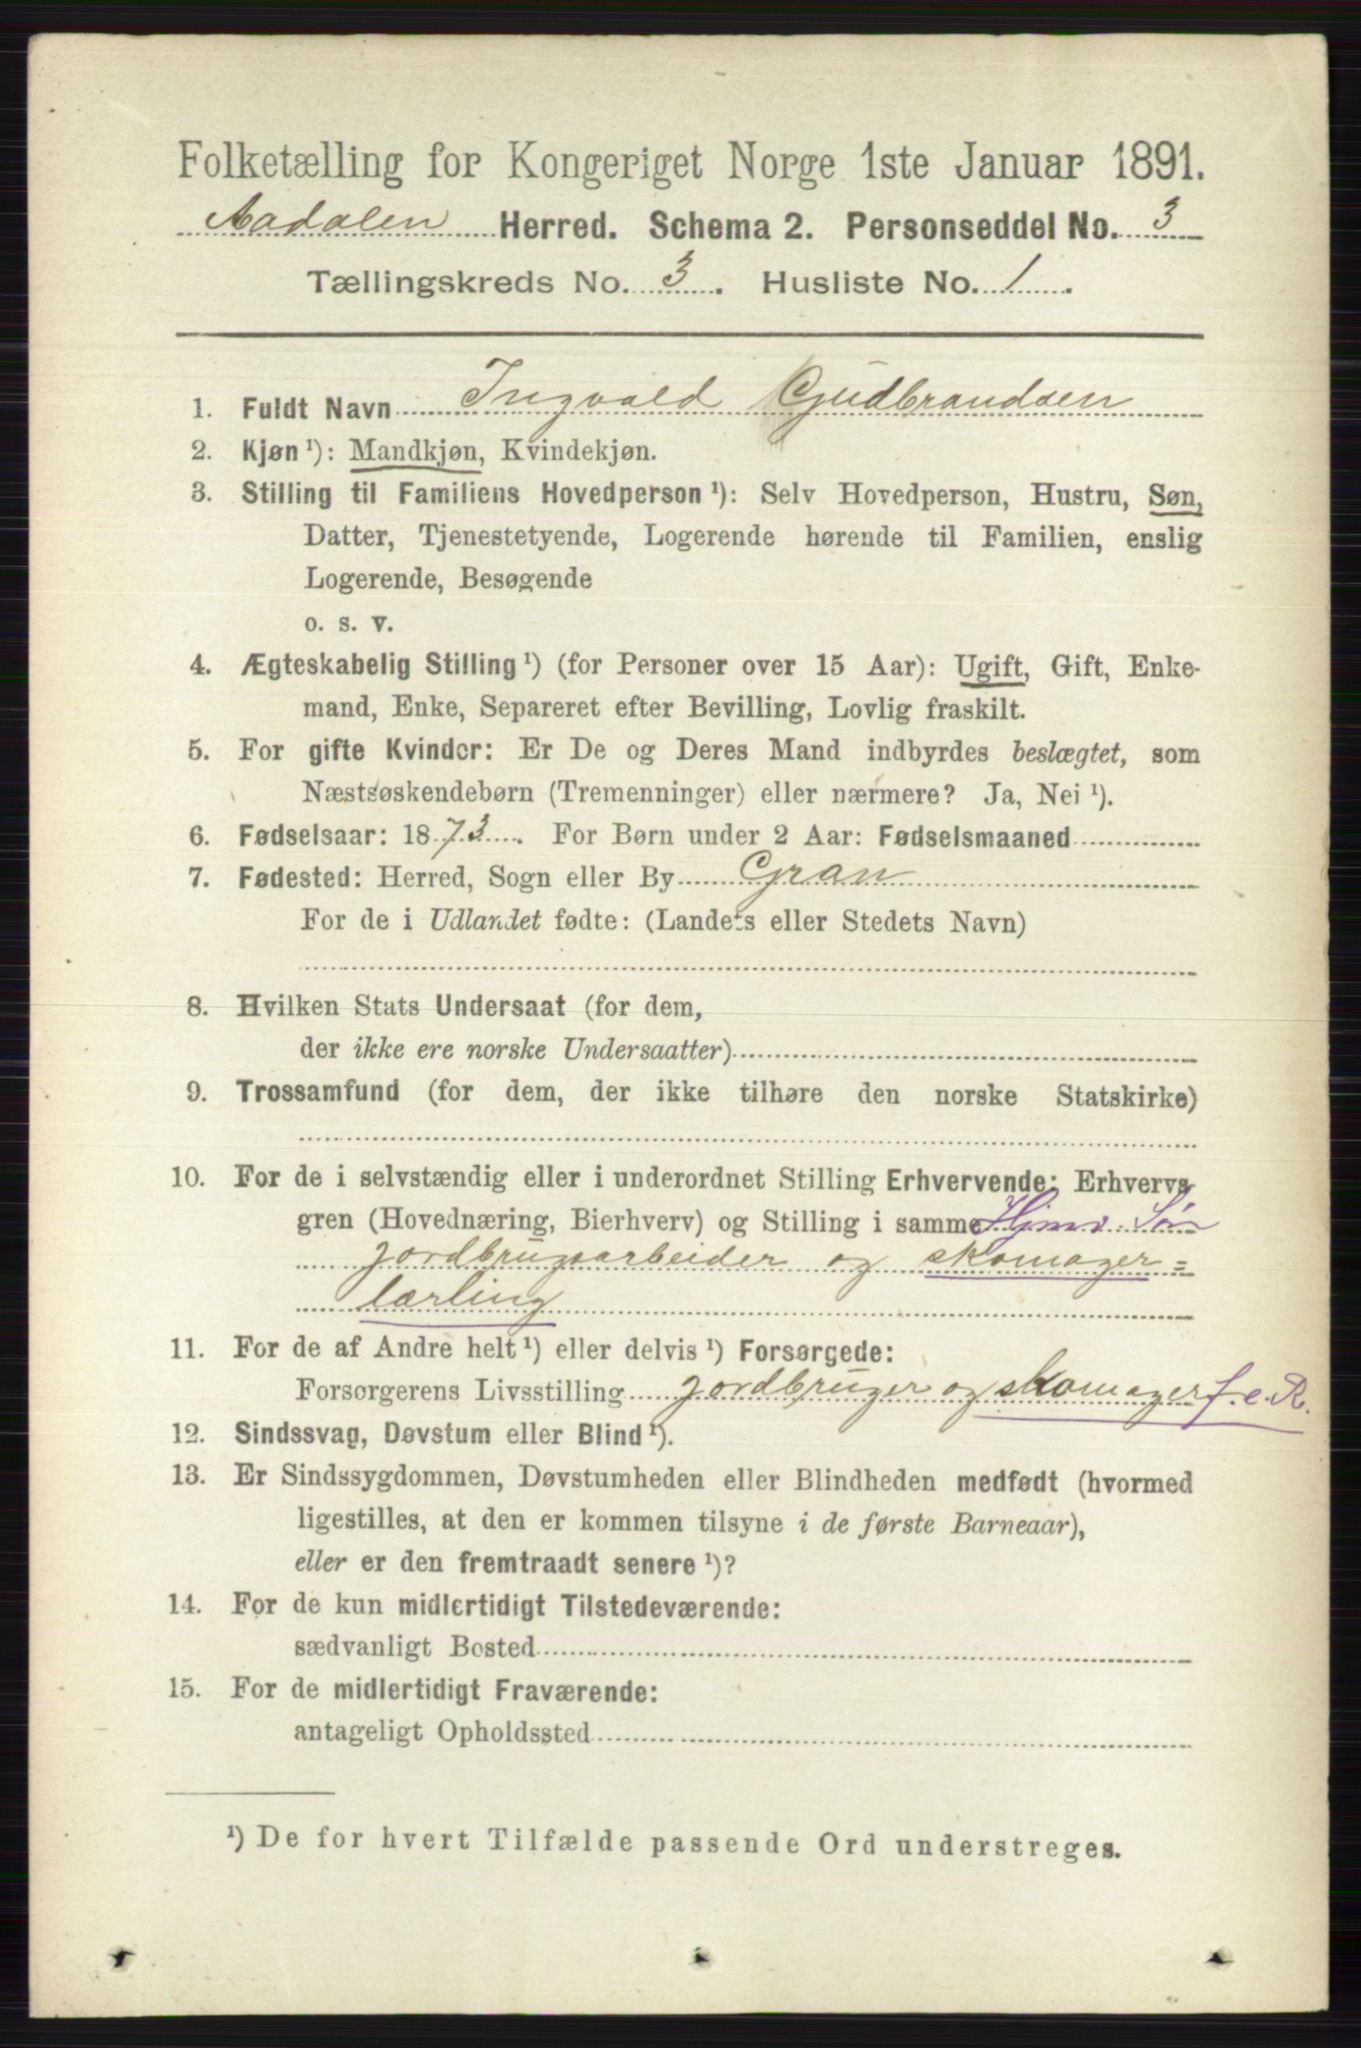 Folketælling for Kongeriget Norge 1ste Januar 1891.
Aadalen Herred. Schema 2. Personseddel No. 3
Tællingskreds No. 3. Husliste No. 1.
1. Fuldt Navn Ingvald Gudbrandsen
2. Kjøn ¹): Mandkjøn, Kvindekjøn.
3. Stilling til Familiens Hovedperson ¹): Selv Hovedperson, Hustru, Søn,
Datter, Tjenestetyende, Logerende hørende til Familien, enslig
Logerende, Besøgende
o. s. v.
4. Ægteskabelig Stilling ¹) (for Personer over 15 Aar): Ugift, Gift, Enke-
mand, Enke, Separeret efter Bevilling, Lovlig fraskilt.
5. For gifte Kvinder: Er De og Deres Mand indbyrdes beslægtet, som
Næstsøskendebørn (Tremenninger) eller nærmere? Ja, Nei ¹).
6. Fødselsaar: 1873. For Børn under 2 Aar: Fødselsmaaned
7. Fødested: Herred, Sogn eller By Gran
For de i Udlandet fødte: (Landets eller Stedets Navn)
8. Hvilken Stats Undersaat (for dem,
der ikke ere norske Undersaatter)
9. Trossamfund (for dem, der ikke tilhøre den norske Statskirke)
10. For de i selvstændig eller i underordnet Stilling Erhvervende: Erhvervs-
gren (Hovednæring, Bierhverv) og Stilling i samme Hjmv. Søn
jordbrugsarbeider og skomager=
lærling
11. For de af Andre helt ¹) eller delvis ¹) Forsørgede:
Forsørgerens Livsstilling jordbruger og skomager f. e. R.
12. Sindssvag, Døvstum eller Blind ¹).
13. Er Sindssygdommen, Døvstumheden eller Blindheden medfødt (hvormed
ligestilles, at den er kommen tilsyne i de første Barneaar),
eller er den fremtraadt senere ¹)?
14. For de kun midlertidigt Tilstedeværende:
sædvanligt Bosted
15. For de midlertidigt Fraværende:
antageligt Opholdssted
¹) De for hvert Tilfælde passende Ord understreges.